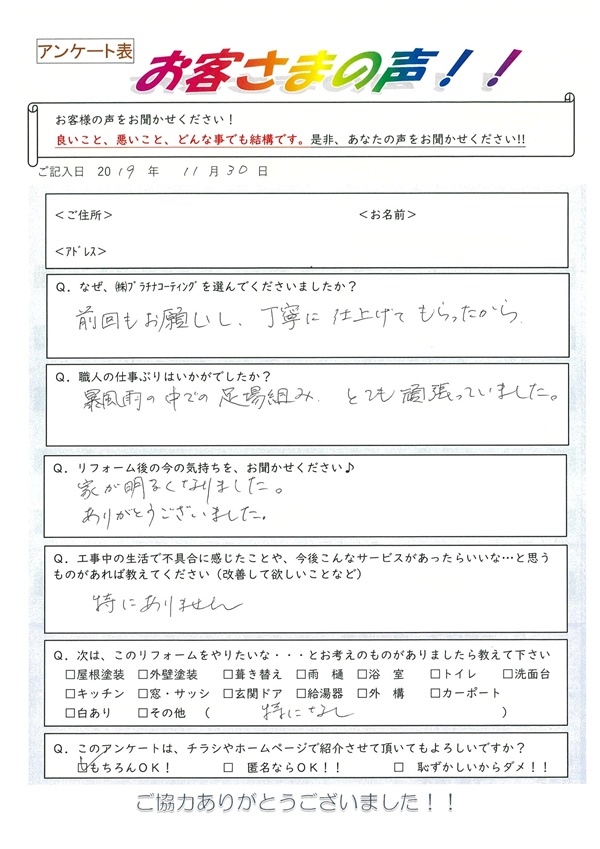 アンケート表
お客さまの声！！
お客様の声をお聞かせください！
良いこと、悪いこと、どんな事でも結構です。是非、あなたの声をお聞かせください!!
ご記入日 2019 年 11 月 30 日
＜ご住所＞ ＜お名前＞
＜ｱﾄﾞﾚｽ＞
Q．なぜ、㈱ﾌﾟﾗﾁﾅｺｰﾃｨﾝｸﾞを選んでくださいましたか？
前回もお願いし、丁寧に仕上げてもらったから
Q．職人の仕事ぶりはいかがでしたか？
暴風雨の中での足場組み、とても頑張っていました。
Q．リフォーム後の今の気持ちを、お聞かせください♪
家が明るくなりました。
ありがとうございました。
Q．工事中の生活で不具合に感じたことや、今後こんなサービスがあったらいいな…と思う
ものがあれば教えてください（改善して欲しいことなど）
特にありません
Q．次は、このリフォームをやりたいな・・・とお考えのものがありましたら教えて下さい
□屋根塗装 □外壁塗装 □葺き替え □雨 樋 □浴 室 □トイレ □洗面台
□キッチン □窓・サッシ □玄関ドア □給湯器 □外 構 □カーポート
□白あり □その他 （ 特になし ）
Q．このアンケートは、チラシやホームページで紹介させて頂いてもよろしいですか？
☑もちろんOK！ □ 匿名ならOK！！ □ 恥ずかしいからダメ！！
ご協力ありがとうございました！！